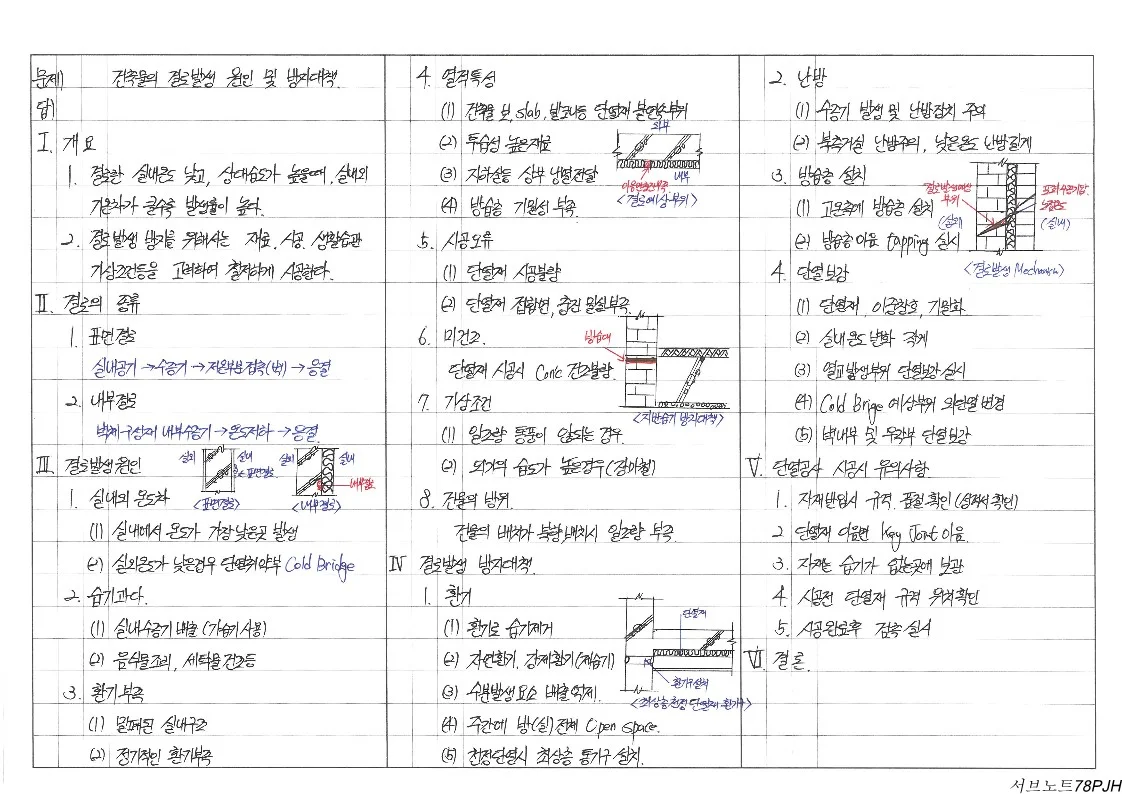 문제) 건축물의 결로발생 원인 및 방지대책.
답)
Ⅰ. 개요
1. 결로란 실내온도 낮고, 상대습도가 높을때, 실내외
기온차가 클수록 발생율이 높다.
2. 결로발생 방지를 위해서는 재료, 시공, 생활습관
기상조건등을 고려하여 철저하게 시공한다.
Ⅱ. 결로의 종류
1. 표면결로
실내공기 → 수증기 → 저온부분접촉(벽) → 응결
2. 내부결로
벽체구성재 내부수증기 → 온도저하 → 응결.
Ⅲ. 결로발생원인
실외 실내 표면결로
<표면결로>
실외 실내 내부결로
<내부결로>
1. 실내외 온도차
(1) 실내에서 온도가 가장낮은곳 발생
(2) 실외온도가 낮은경우 단열취약부 Cold Bridge
2. 습기과다.
(1) 실내수증기 배출 (가습기 사용)
(2) 음식물조리, 세탁물건조등
3. 환기부족
(1) 밀폐된 실내구조
(2) 정기적인 환기부족
4. 열적특성
(1) 건축물 보, slab, 발코니등 단열재 불연속부위
(2) 투습성 높은재료
(3) 지하실등 상부 냉열전달
(4) 방습층 기밀성 부족.
외부
내부
<결로예상부위>
5. 시공오류
(1) 단열재 시공불량
(2) 단열재 접합면, 충진 밀실부족.
6. 미건조.
단열재 시공시 Conc 건조불량.
방습대
<지반습기 방지대책>
7. 기상조건
(1) 일조량 통풍이 안되는 경우.
(2) 외기의 습도가 높은경우 (장마철)
8. 건물의 방위.
건물의 배치가 북향,배치시 일조량 부족.
Ⅳ 결로발생 방지대책.
1. 환기
(1) 환기로 습기제거
(2) 자연환기, 강제환기 (제습기)
(3) 수분발생요소 배출억제.
(4) 주간에 방(실)전체 Open space.
(5) 천정단열시 최상층 통기구 설치.
단열재
환기구설치
<최상층천정 단열재 환기구>
2. 난방
(1) 수증기 발생 및 난방장치 주의
(2) 북측거실 난방주의, 낮은온도 난방길게
3. 방습층 설치
(1) 고온측에 방습층 설치
(2) 방습층이음 tapping 실시
결로발생예상
부위
(실외)
(실내)
<결로발생 Mechanism>
4. 단열보강
(1) 단열재, 이중창호, 기밀화.
(2) 실내온도변화 적게
(3) 열교발생부위 단열보강 실시
(4) Cold Brige 예상부위 외단열 변경
(5) 벽내부 및 우각부 단열보강
Ⅴ. 단열공사 시공시 유의사항.
1. 자재반입시 규격. 품질확인 (성적서확인)
2 단열재 이음면 Key Joint 이음.
3. 자재는 습기가 없는곳에 보관
4. 시공전 단열재 규격 위치확인
5. 시공완료후 검측실시
Ⅵ 결론.
서브노트78PJH